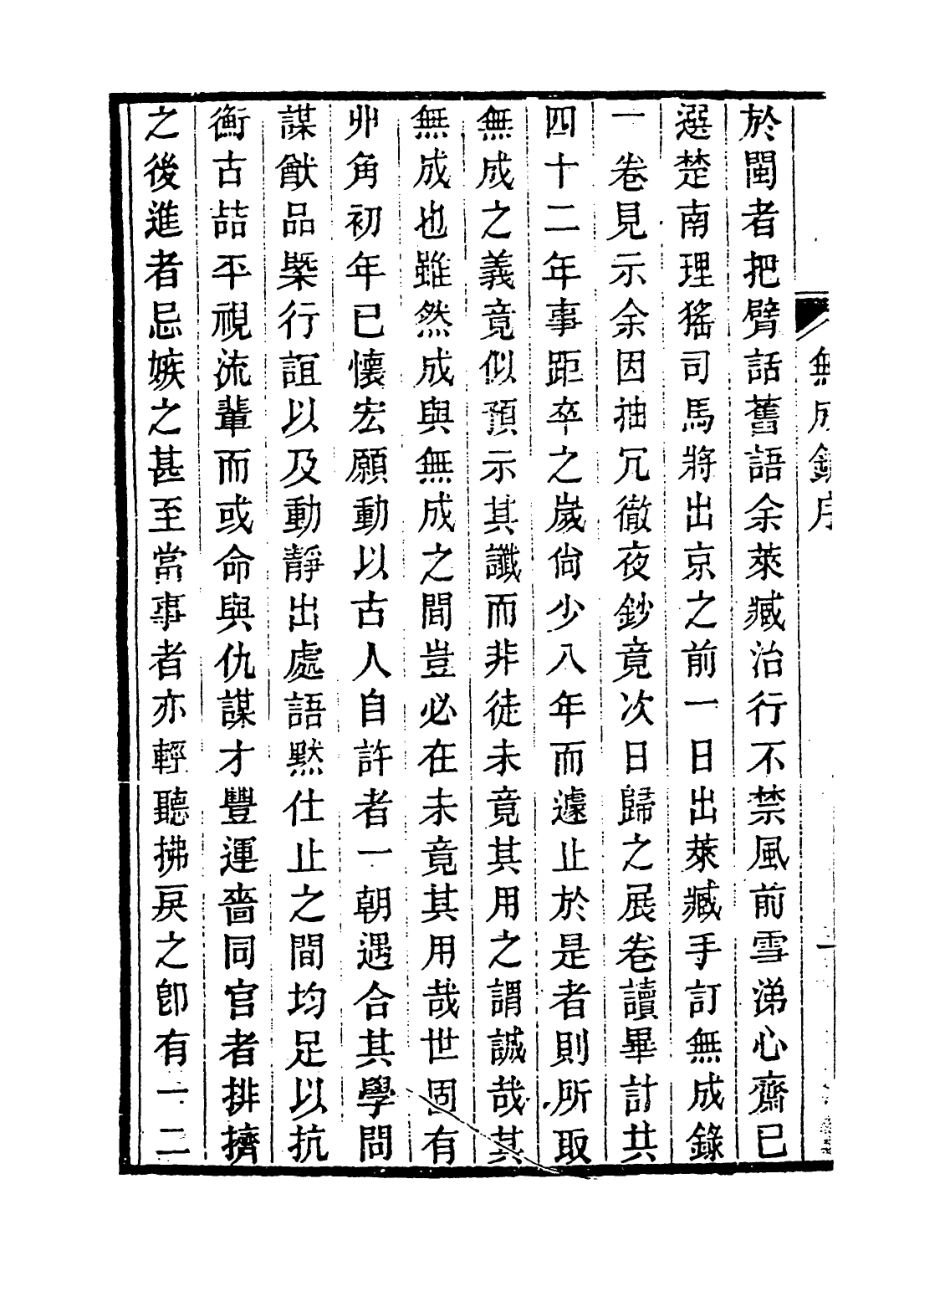 無成錄序
於閩者把臂話舊語余萊臧治行不禁風前雪涕心齋已
選楚南理猺司馬將出京之前一日出萊臧手訂無成錄
一卷見示余因抽冗徹夜鈔竟次日歸之展卷讀畢計共
四十二年事距卒之歲尙少八年而遽止於是者則所取
無成之義竟似預示其讖而非徒未竟其用之謂誠哉其
無成也雖然成與無成之間豈必在未竟其用哉世固有
丱角初年已懷宏願動以古人自許者一朝遇合其學問
謀猷品槩行誼以及動靜出處語默仕止之間均足以抗
衡古喆平視流輩而或命與仇謀才豐運嗇同官者排擠
之後進者忌嫉之甚至當事者亦輕聽拂戾之卽有一二